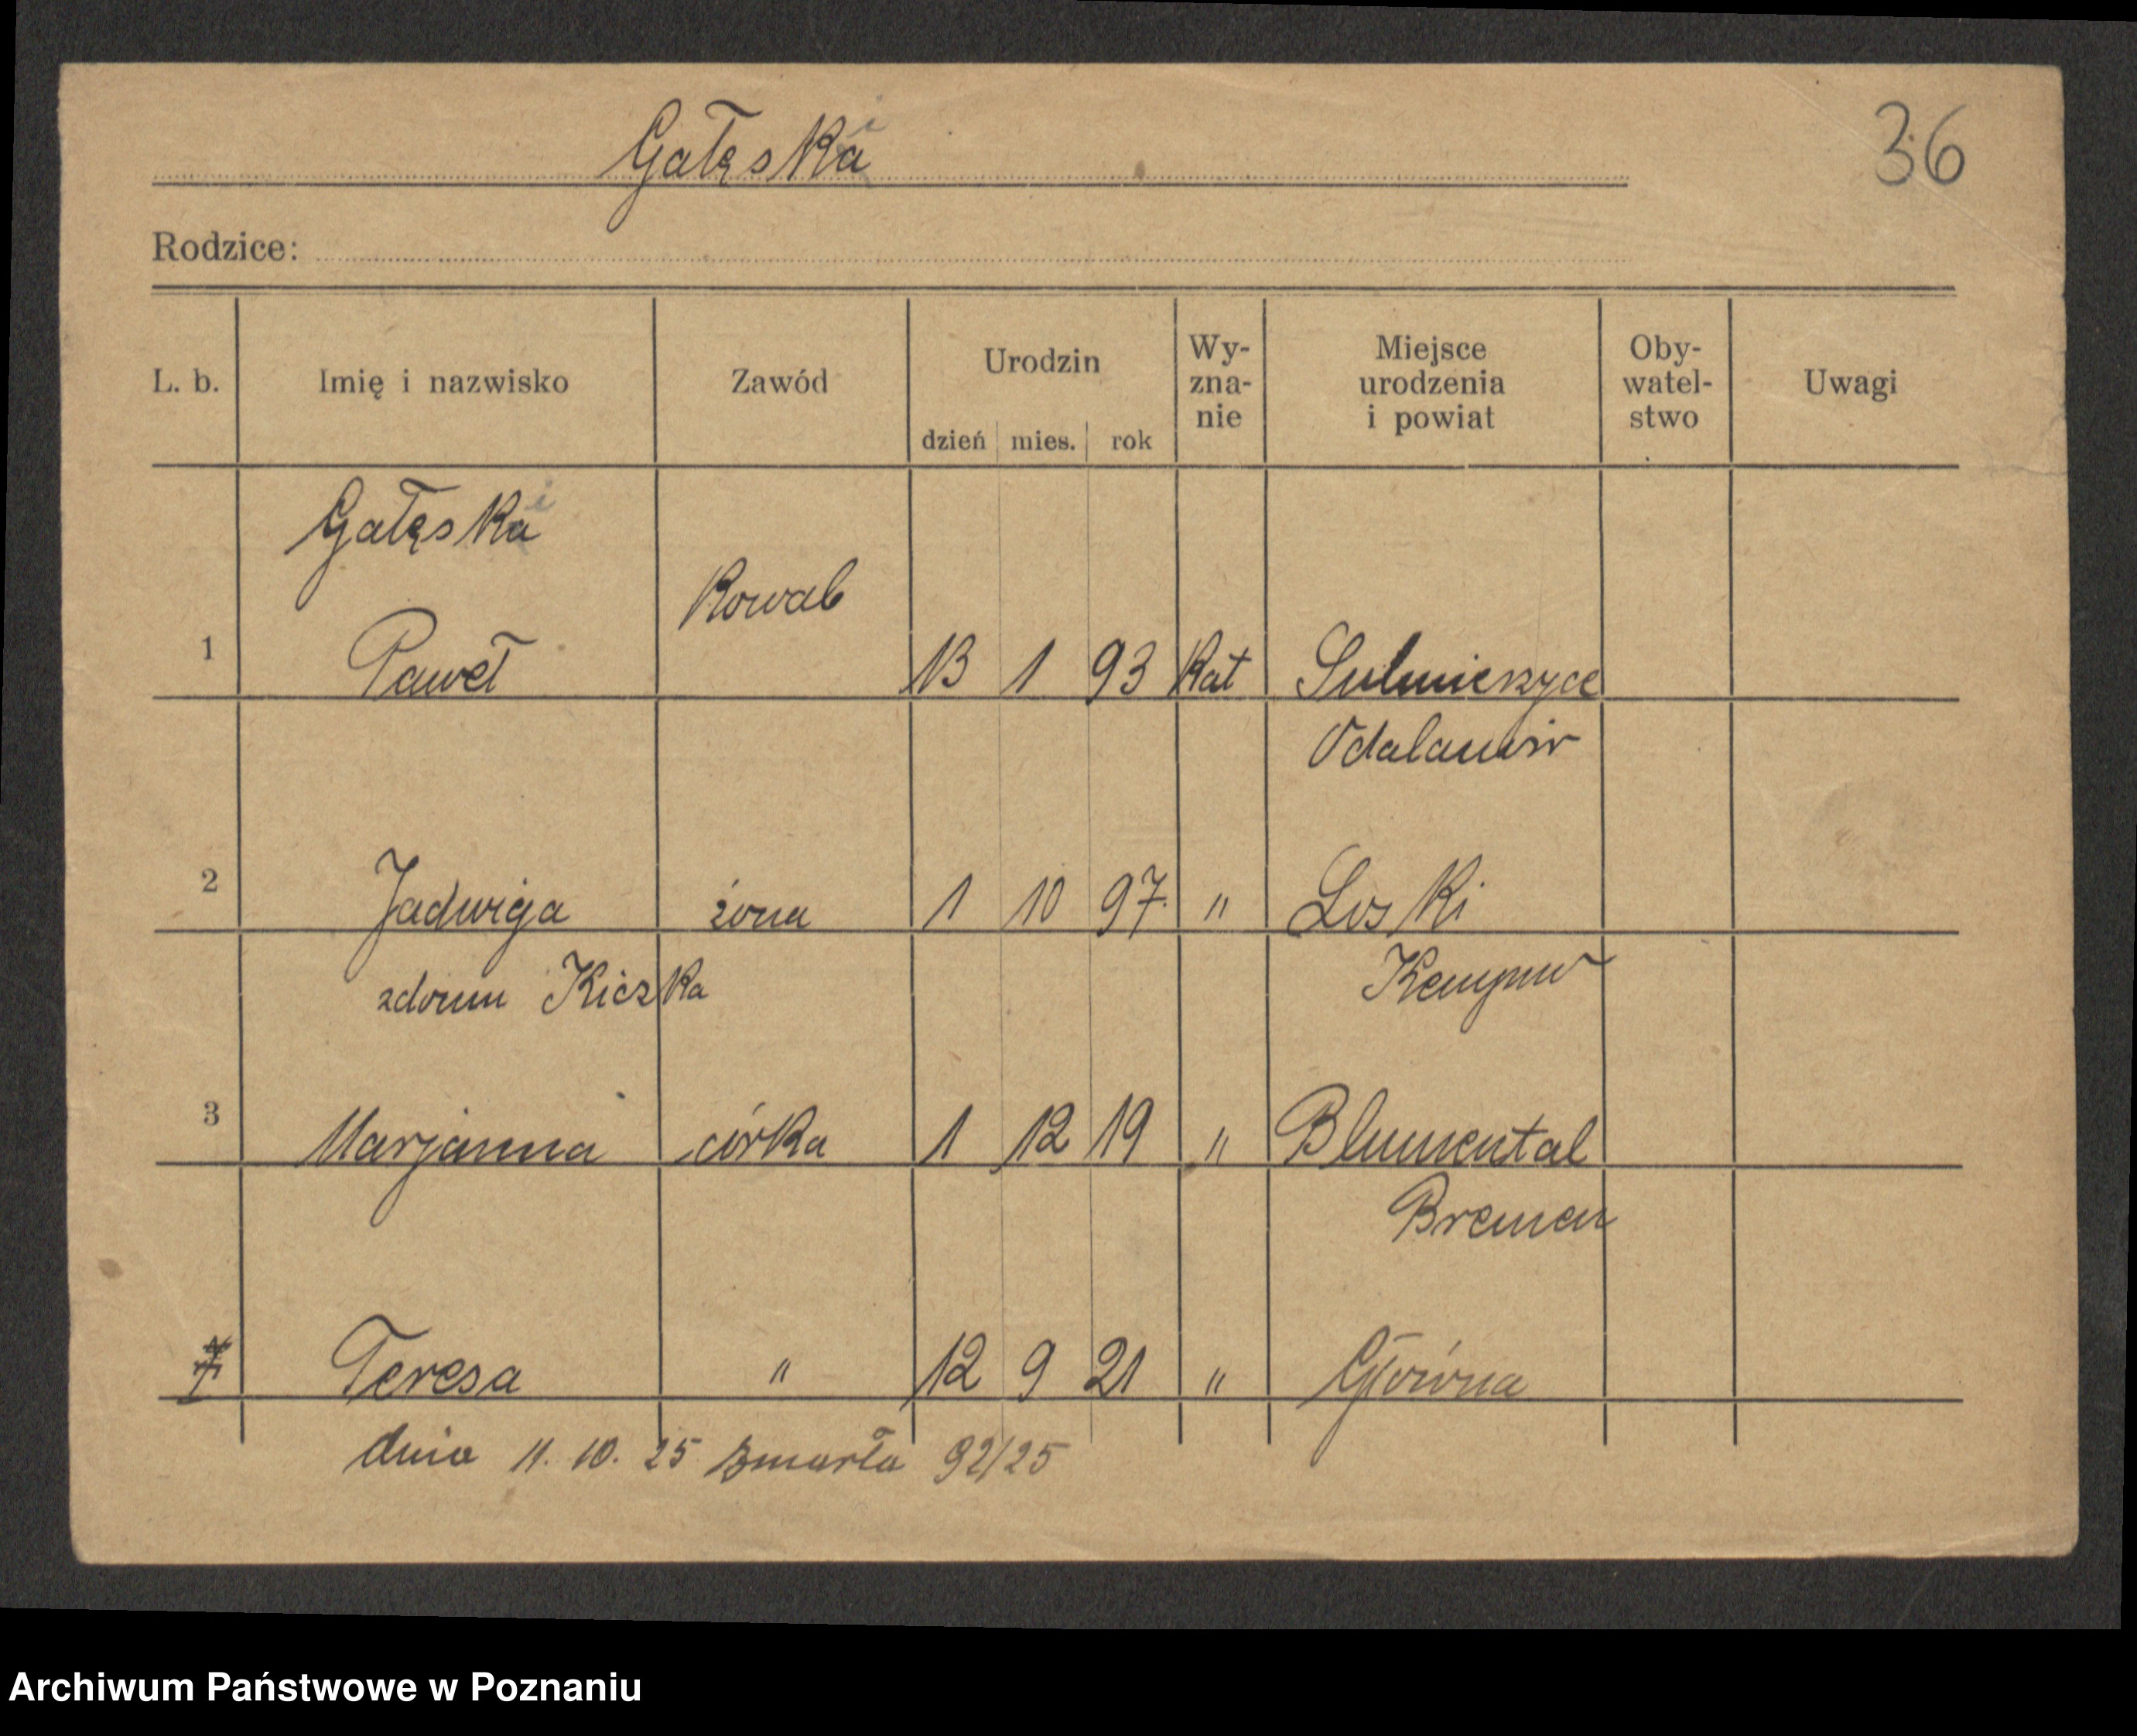 Gałęska i
36
Rodzice:
L. b. Imię i nazwisko Zawód Urodzin dzień mies. rok Wy-zna-nie Miejsce urodzenia i powiat Oby-watel-stwo Uwagi
Gałęska i
Kowal
1 Paweł 13 1 93 Kat Sulmierzyce
Odalanów
2 Jadwiga żona 1 10 97. " Loski
zdomu Kiczka Kempno
3 Marjanna córka 1 12 19 " Blumental
Bremen
Teresa " 12 9 21 " Główna
dnia 11. 10. 25 zmarła 92/25
Archiwum Państwowe w Poznaniu